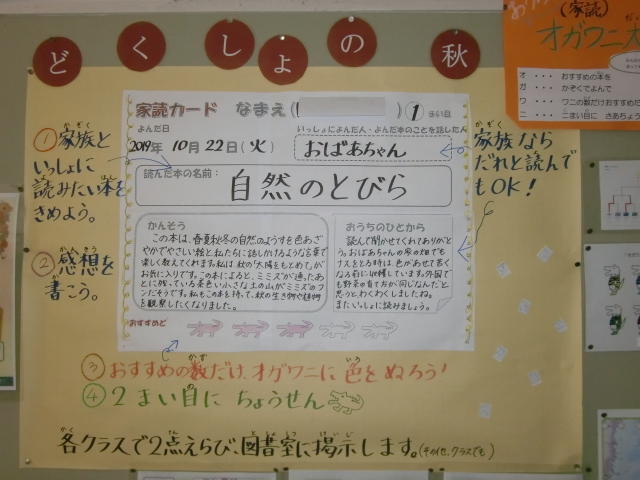 どくしょの秋
家読カード なまえ( )① まい目
よんだ日
2019年 10月 22日(火)
いっしょによんだ人・よんだ本のことを話した人
おばあちゃん
読んだ本の名前:
自然のとびら
かんそう
この本は、春夏秋冬の自然のようすを色あざ
やかでやさしい絵と私たちに話しかけるような言葉で
楽しく教えてくれます。私は秋の「太陽をもとめて」が
お気に入りです。この本によると、ミミズが通ったあ
とに残っている茶色い小さな土の山がミミズのフ
ンだそうです。私もこの本を持って、秋の生き物や植物
を観察したくなりました。
おうちのひとから
読んで聞かせてくれてありがと
う。おばあちゃんの家の畑でも
ナスをとる時は、色があせて悪く
なる前に収穫しています。外国で
も野菜の育て方が同じなんだと
思うとわくわくしましたね。
またいっしょに読みましょう。
おすすめど
①家族と
かぞく
いっしょに
読みたい本を
きめよう。
②感想を
かんそう
書こう。
家族なら
かぞく
だれと読んで
もOK!
③おすすめの数だけ、オガワニに色をぬろう!
かず
いろ
④2まい目にちょうせん
各クラスで2点えらび、図書室に掲示します。(その他、クラスでも)
かく
てん
としょしつ
けいじ
(家読)
オガワニ
オ・・・おすすめの本を
ガ・・・かぞくでよんで
ワ・・・ワニの数だけおすすめだ
ニ・・・こまい目に さあちょう